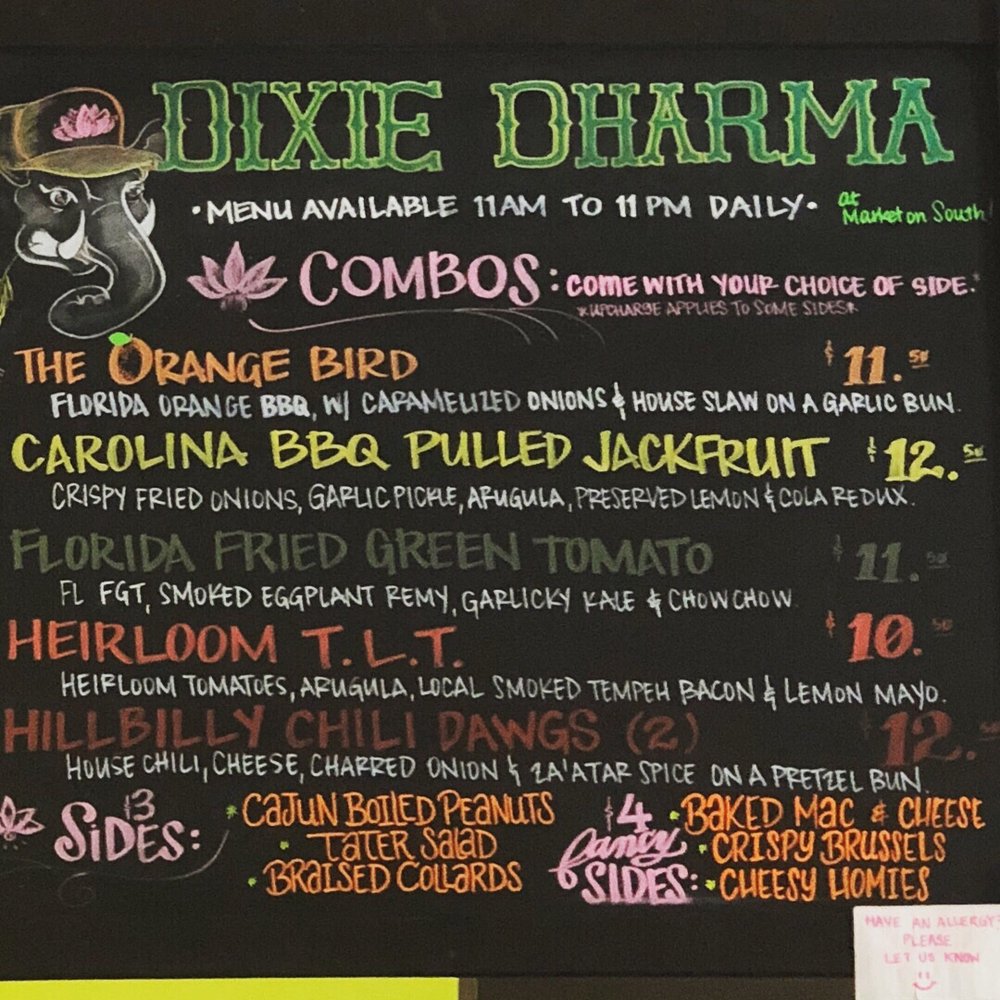 DIXIE DHARMA
• MENU AVAILABLE 11AM TO 11PM DAILY • at Market on South!
COMBOS: COME WITH YOUR CHOICE OF SIDE.*
*UPCHARGE APPLIES TO SOME SIDES*
THE ORANGE BIRD $11.50
FLORIDA ORANGE BBQ, W/ CARAMELIZED ONIONS & HOUSE SLAW ON A GARLIC BUN.
CAROLINA BBQ PULLED JACKFRUIT $12.50
CRISPY FRIED ONIONS, GARLIC PICKLE, ARUGULA, PRESERVED LEMON & COLA REDUX.
FLORIDA FRIED GREEN TOMATO $11.50
FL FGT, SMOKED EGGPLANT REMY, GARLICKY KALE & CHOW CHOW
HEIRLOOM T.L.T. $10.50
HEIRLOOM TOMATOES, ARUGULA, LOCAL SMOKED TEMPEH BACON & LEMON MAYO.
HILLBILLY CHILI DAWGS (2) $12.
HOUSE CHILI, CHEESE, CHARRED ONION & ZA'ATAR SPICE ON A PRETZEL BUN.
$3 SIDES:
• CAJUN BOILED PEANUTS
• TATER SALAD
• BRAISED COLLARDS
$4 fancy SIDES:
• BAKED MAC & CHEESE
• CRISPY BRUSSELS
• CHEESY HOMIES
HAVE AN ALLERGY?
PLEASE
LET US KNOW